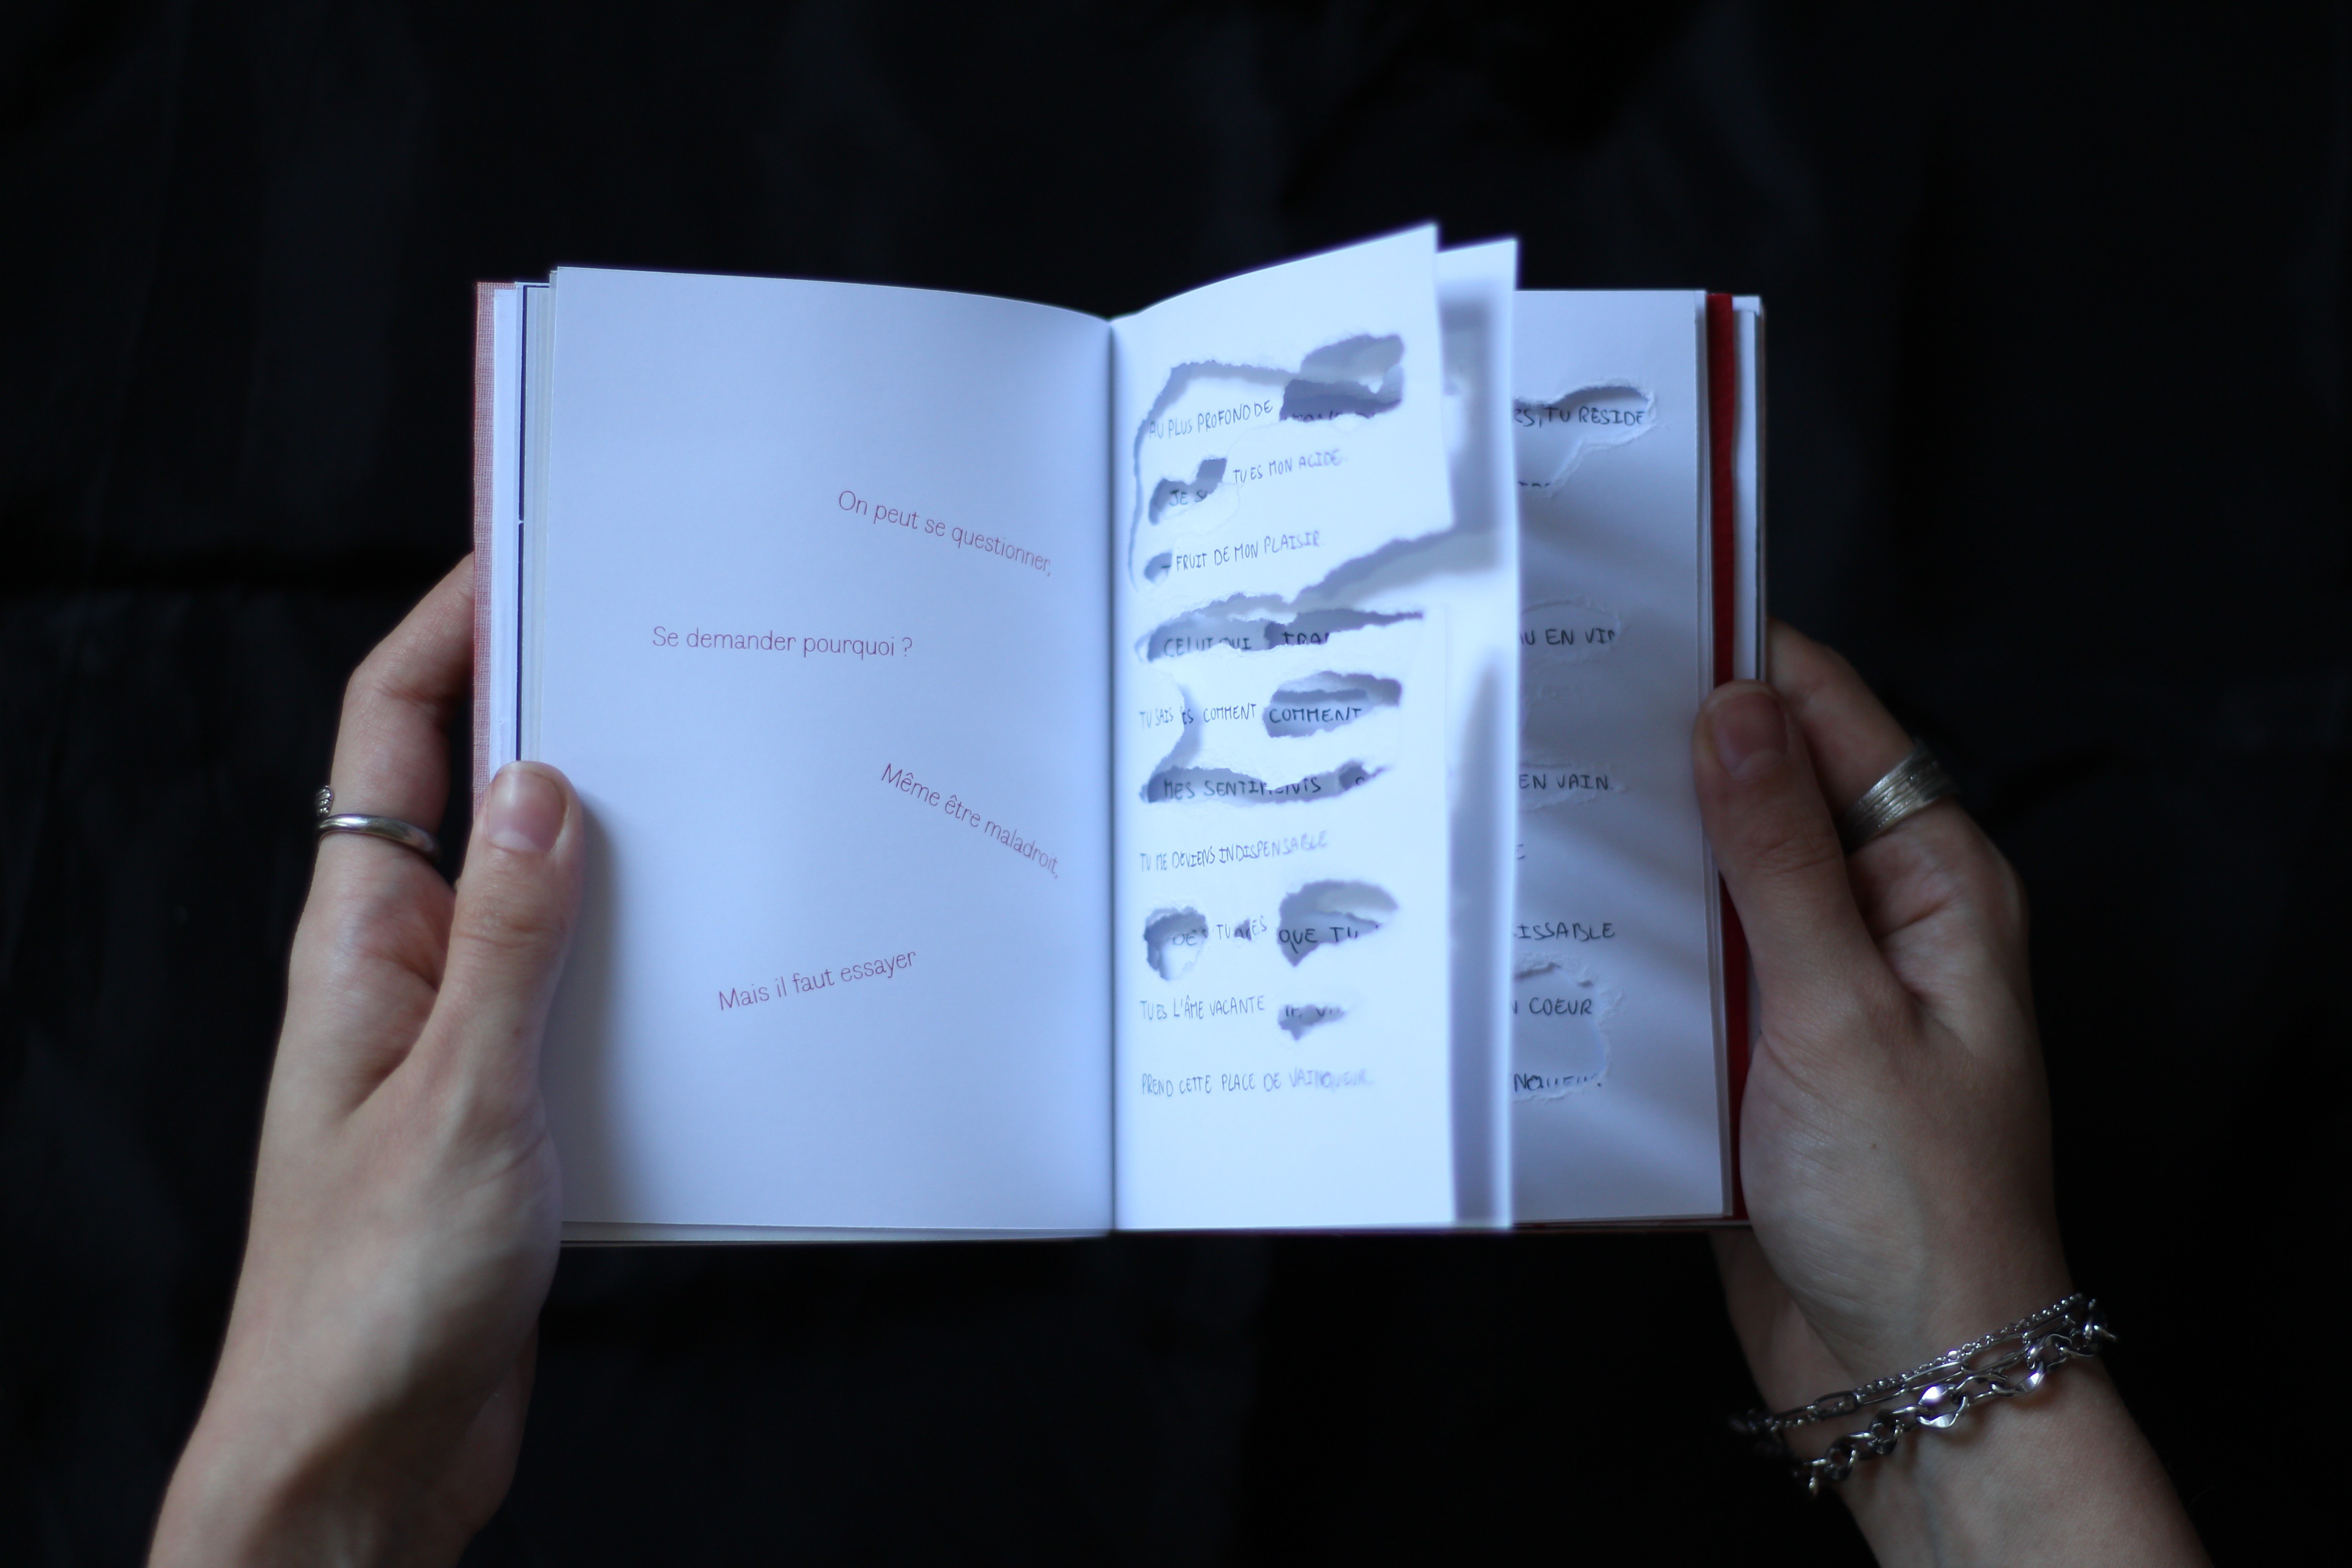 On peut se questionner,
Se demander pourquoi ?
Même être maladroit,
Mais il faut essayer
AU PLUS PROFOND DE
JE TU ES MON ACIDE.
FRUIT DE MON PLAISIR
CELUI QUI
TU SAIS COMMENT COMMENT
MES SENTIMENTS
TU ME DEVIENS INDISPENSABLE
TU QUE TU
TU ES L'ÂME VACANTE
PREND CETTE PLACE DE VAINQUEUR.
TU RÉSIDE
EN
EN VAIN.
COEUR